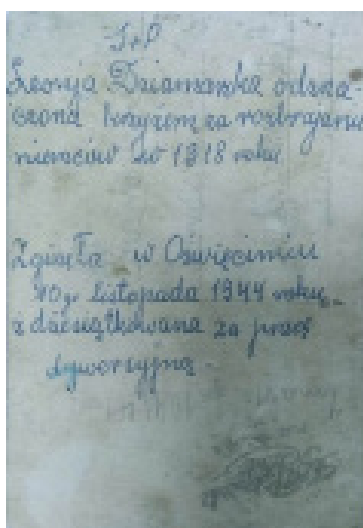 Ś.P.
Leonja Dziamarska odzna-
czona krzyżem za rozbrajanie
niemców w 1918 roku
Zginęła w Oświęcimiu
10go listopada 1944 roku
zdziesiątkowana za pracę
dywersyjną.